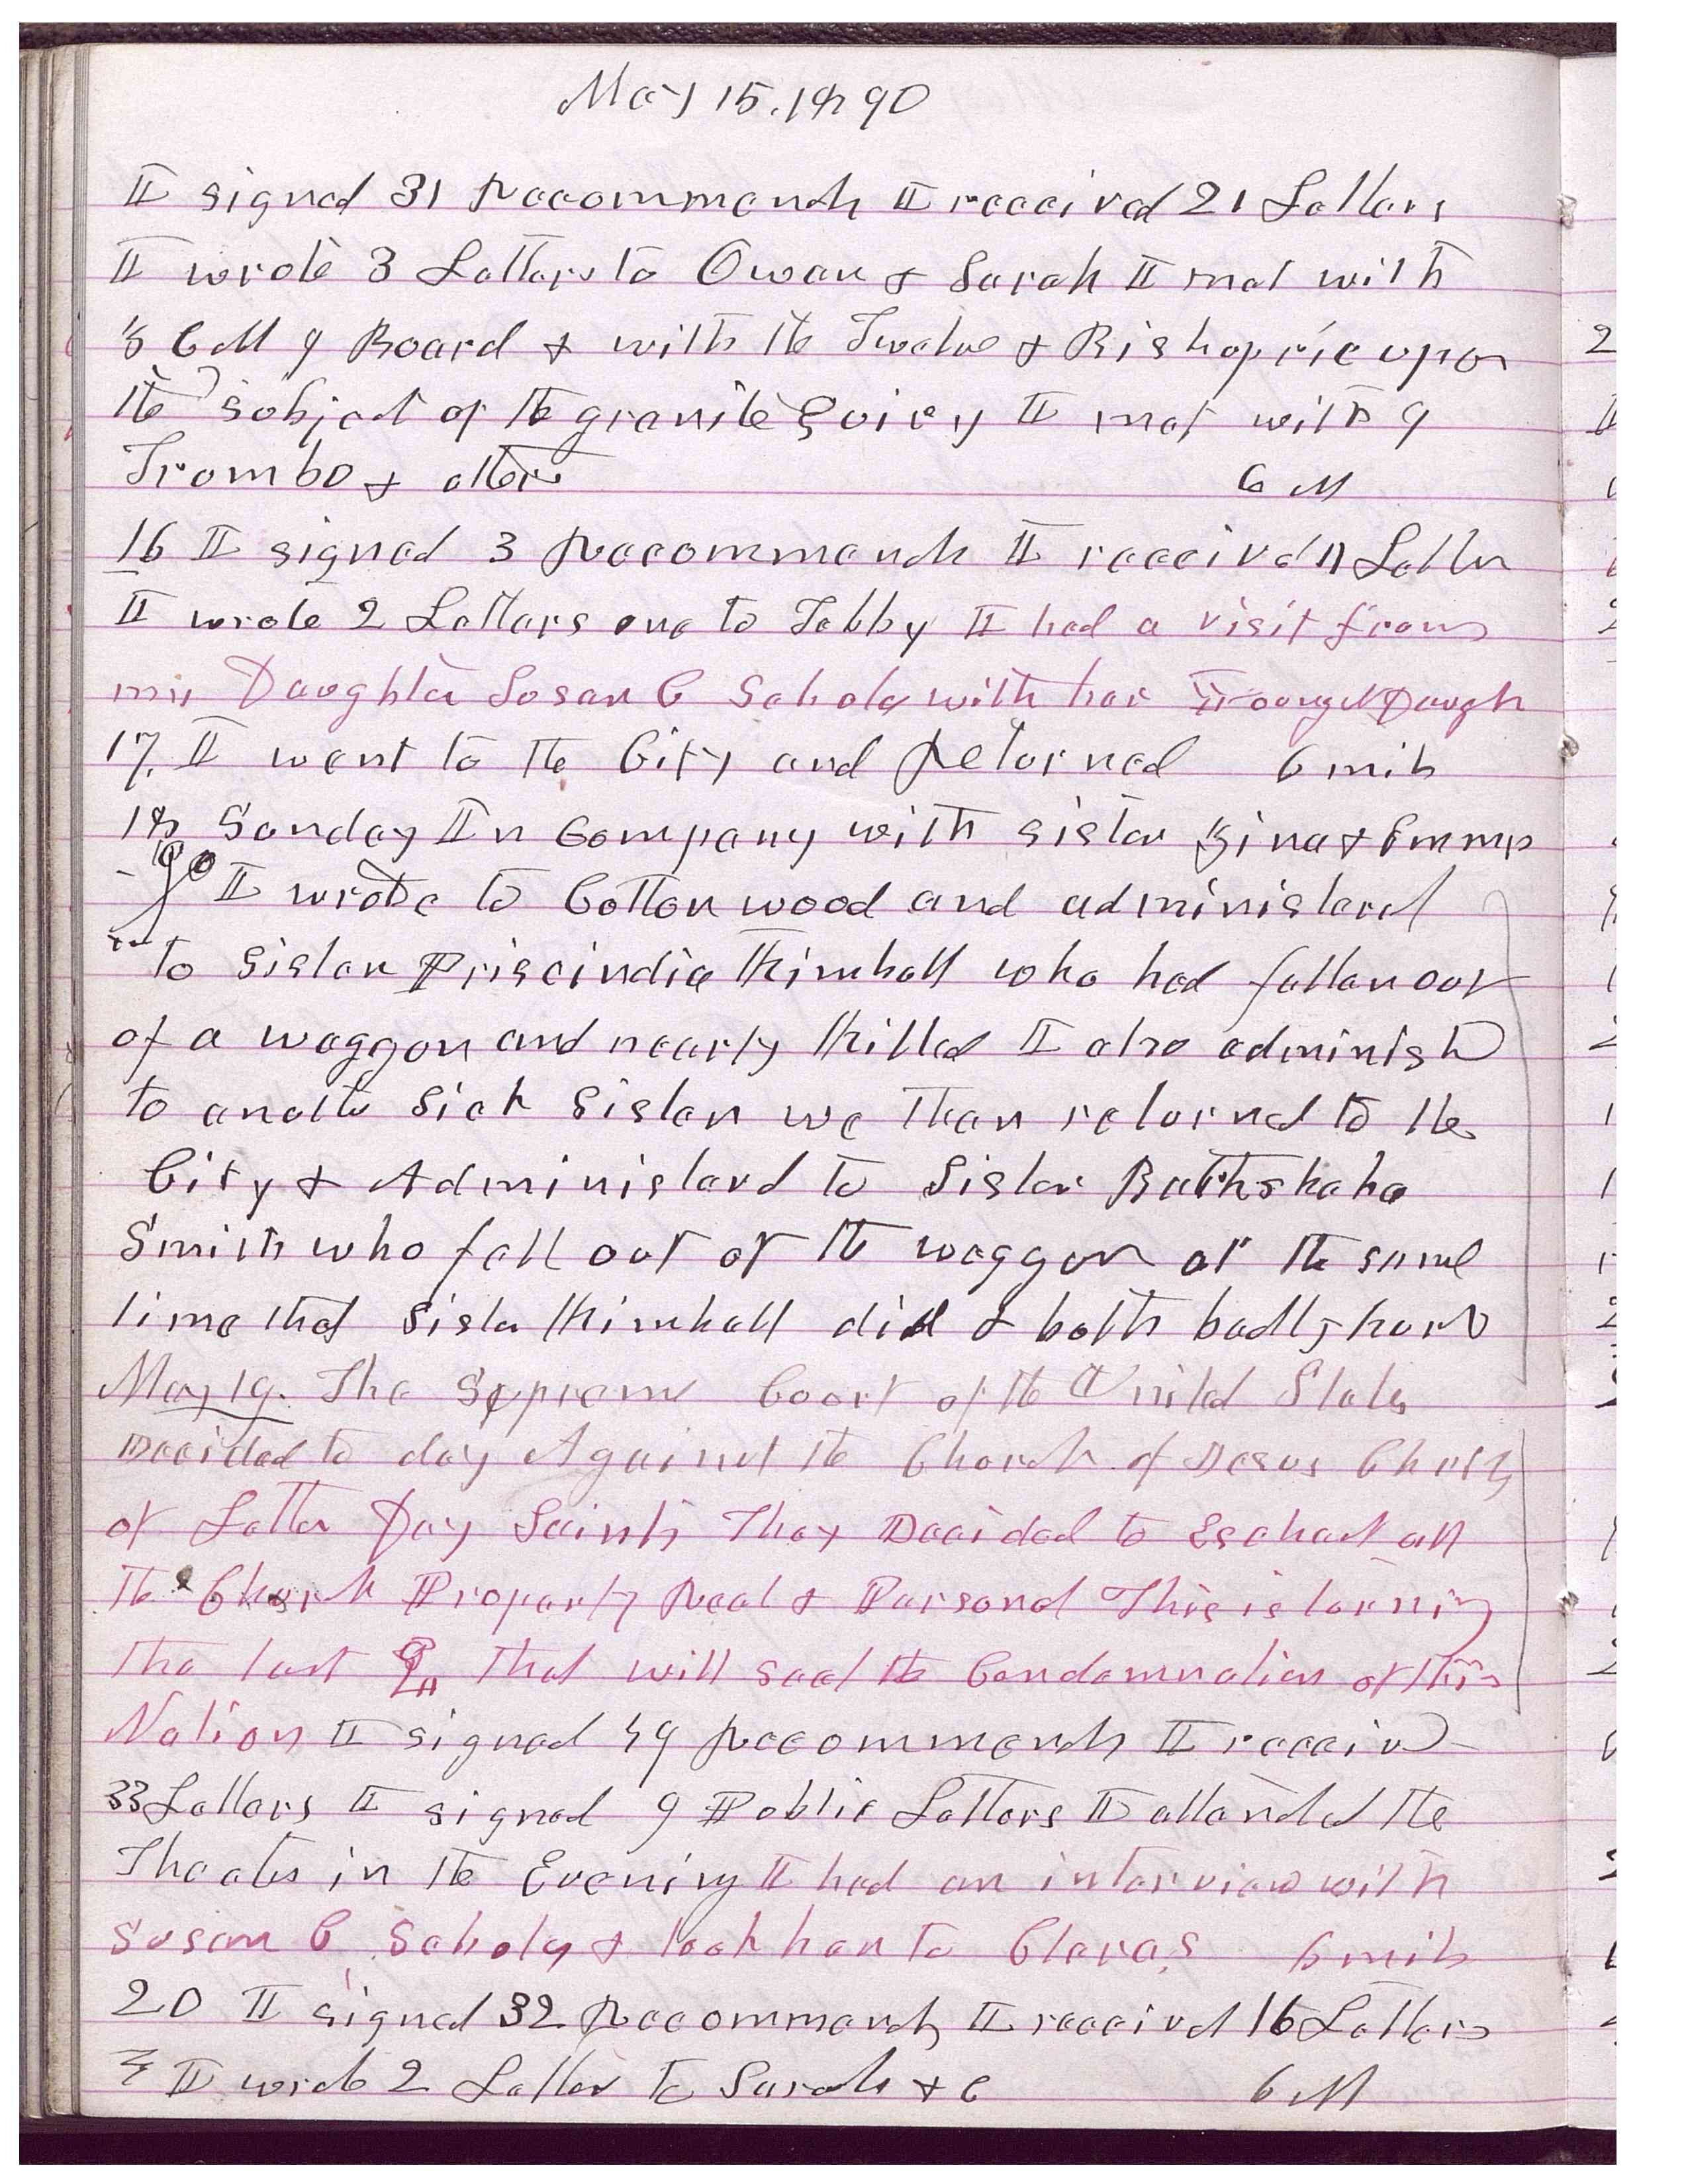 May 15, 1890
I signed 31 Recommends I received 21 Letters
I wrote 3 Letters to Owen & Sarah I met with
Z C M I Board & with the Twelve & Bishopric upon
the subject of the granite Quiry I met with
Trombo & others 6 M
16 I signed 3 Recommends I received 11 Letters
I wrote 2 Letters one to Tobby I had a visit from
my Daughter Susan C Scholes with her Daught
17. I went to the City and Returned 6 mils
18 Sunday In Company with sister Zina & Emma
I wrode to Cottonwood and administerd
to Sister Priscindia Kimball who had fallen out
of a waggon and nearly killed I also administ
to another Sick Sister we then returned to the
City & Administerd to Sister Bathsheba
Smith who fell out of the waggon at the same
time that Sister Kimball did & both badly hurt
May 19. The Supreme Court of the United States
Decided to day Against the Church of Jesus Christ
of Latter Day Saints They Decided to Escheat all
the Church Property Real & Personal This is turning
the last that will seal the Condemnation of this
Nation I signed 49 Recommends I received
33 Letters I signed 9 Public Letters I attended the
Theater in the Evening I had an interview with
Susan C Scholes & took her to Claras 6 mils
20 I signed 32 Recommends I received 16 Letters
I wrote 2 Letter to Sarah & C 6 M